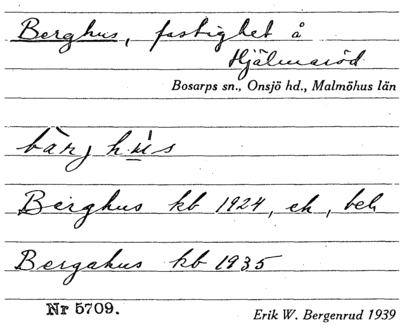 Berghus, fastighet å
Hjälmaröd
Bosarps sn., Onsjö hd., Malmöhus län
bàrj hús
Berghus kb 1924, ek, beb
Bergahus kb 1935
Nr 5709.
Erik W. Bergenrud 1939